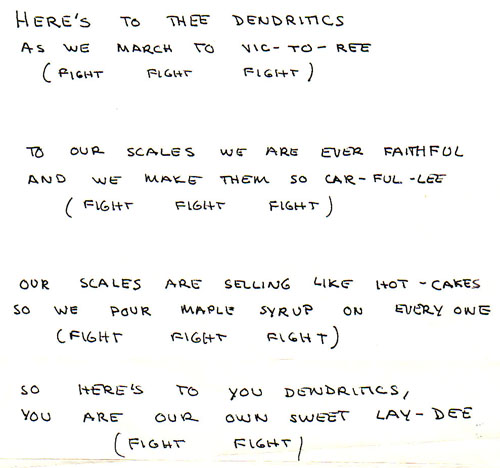 HERE'S TO THEE DENDRITICS
AS WE MARCH TO VIC-TO-REE
(FIGHT FIGHT FIGHT)
TO OUR SCALES WE ARE EVER FAITHFUL
AND WE MAKE THEM SO CAR-FUL-LEE
(FIGHT FIGHT FIGHT)
OUR SCALES ARE SELLING LIKE HOT-CAKES
SO WE POUR MAPLE SYRUP ON EVERY ONE
(FIGHT FIGHT FIGHT)
SO HERE'S TO YOU DENDRITICS,
YOU ARE OUR OWN SWEET LAY-DEE
(FIGHT FIGHT)